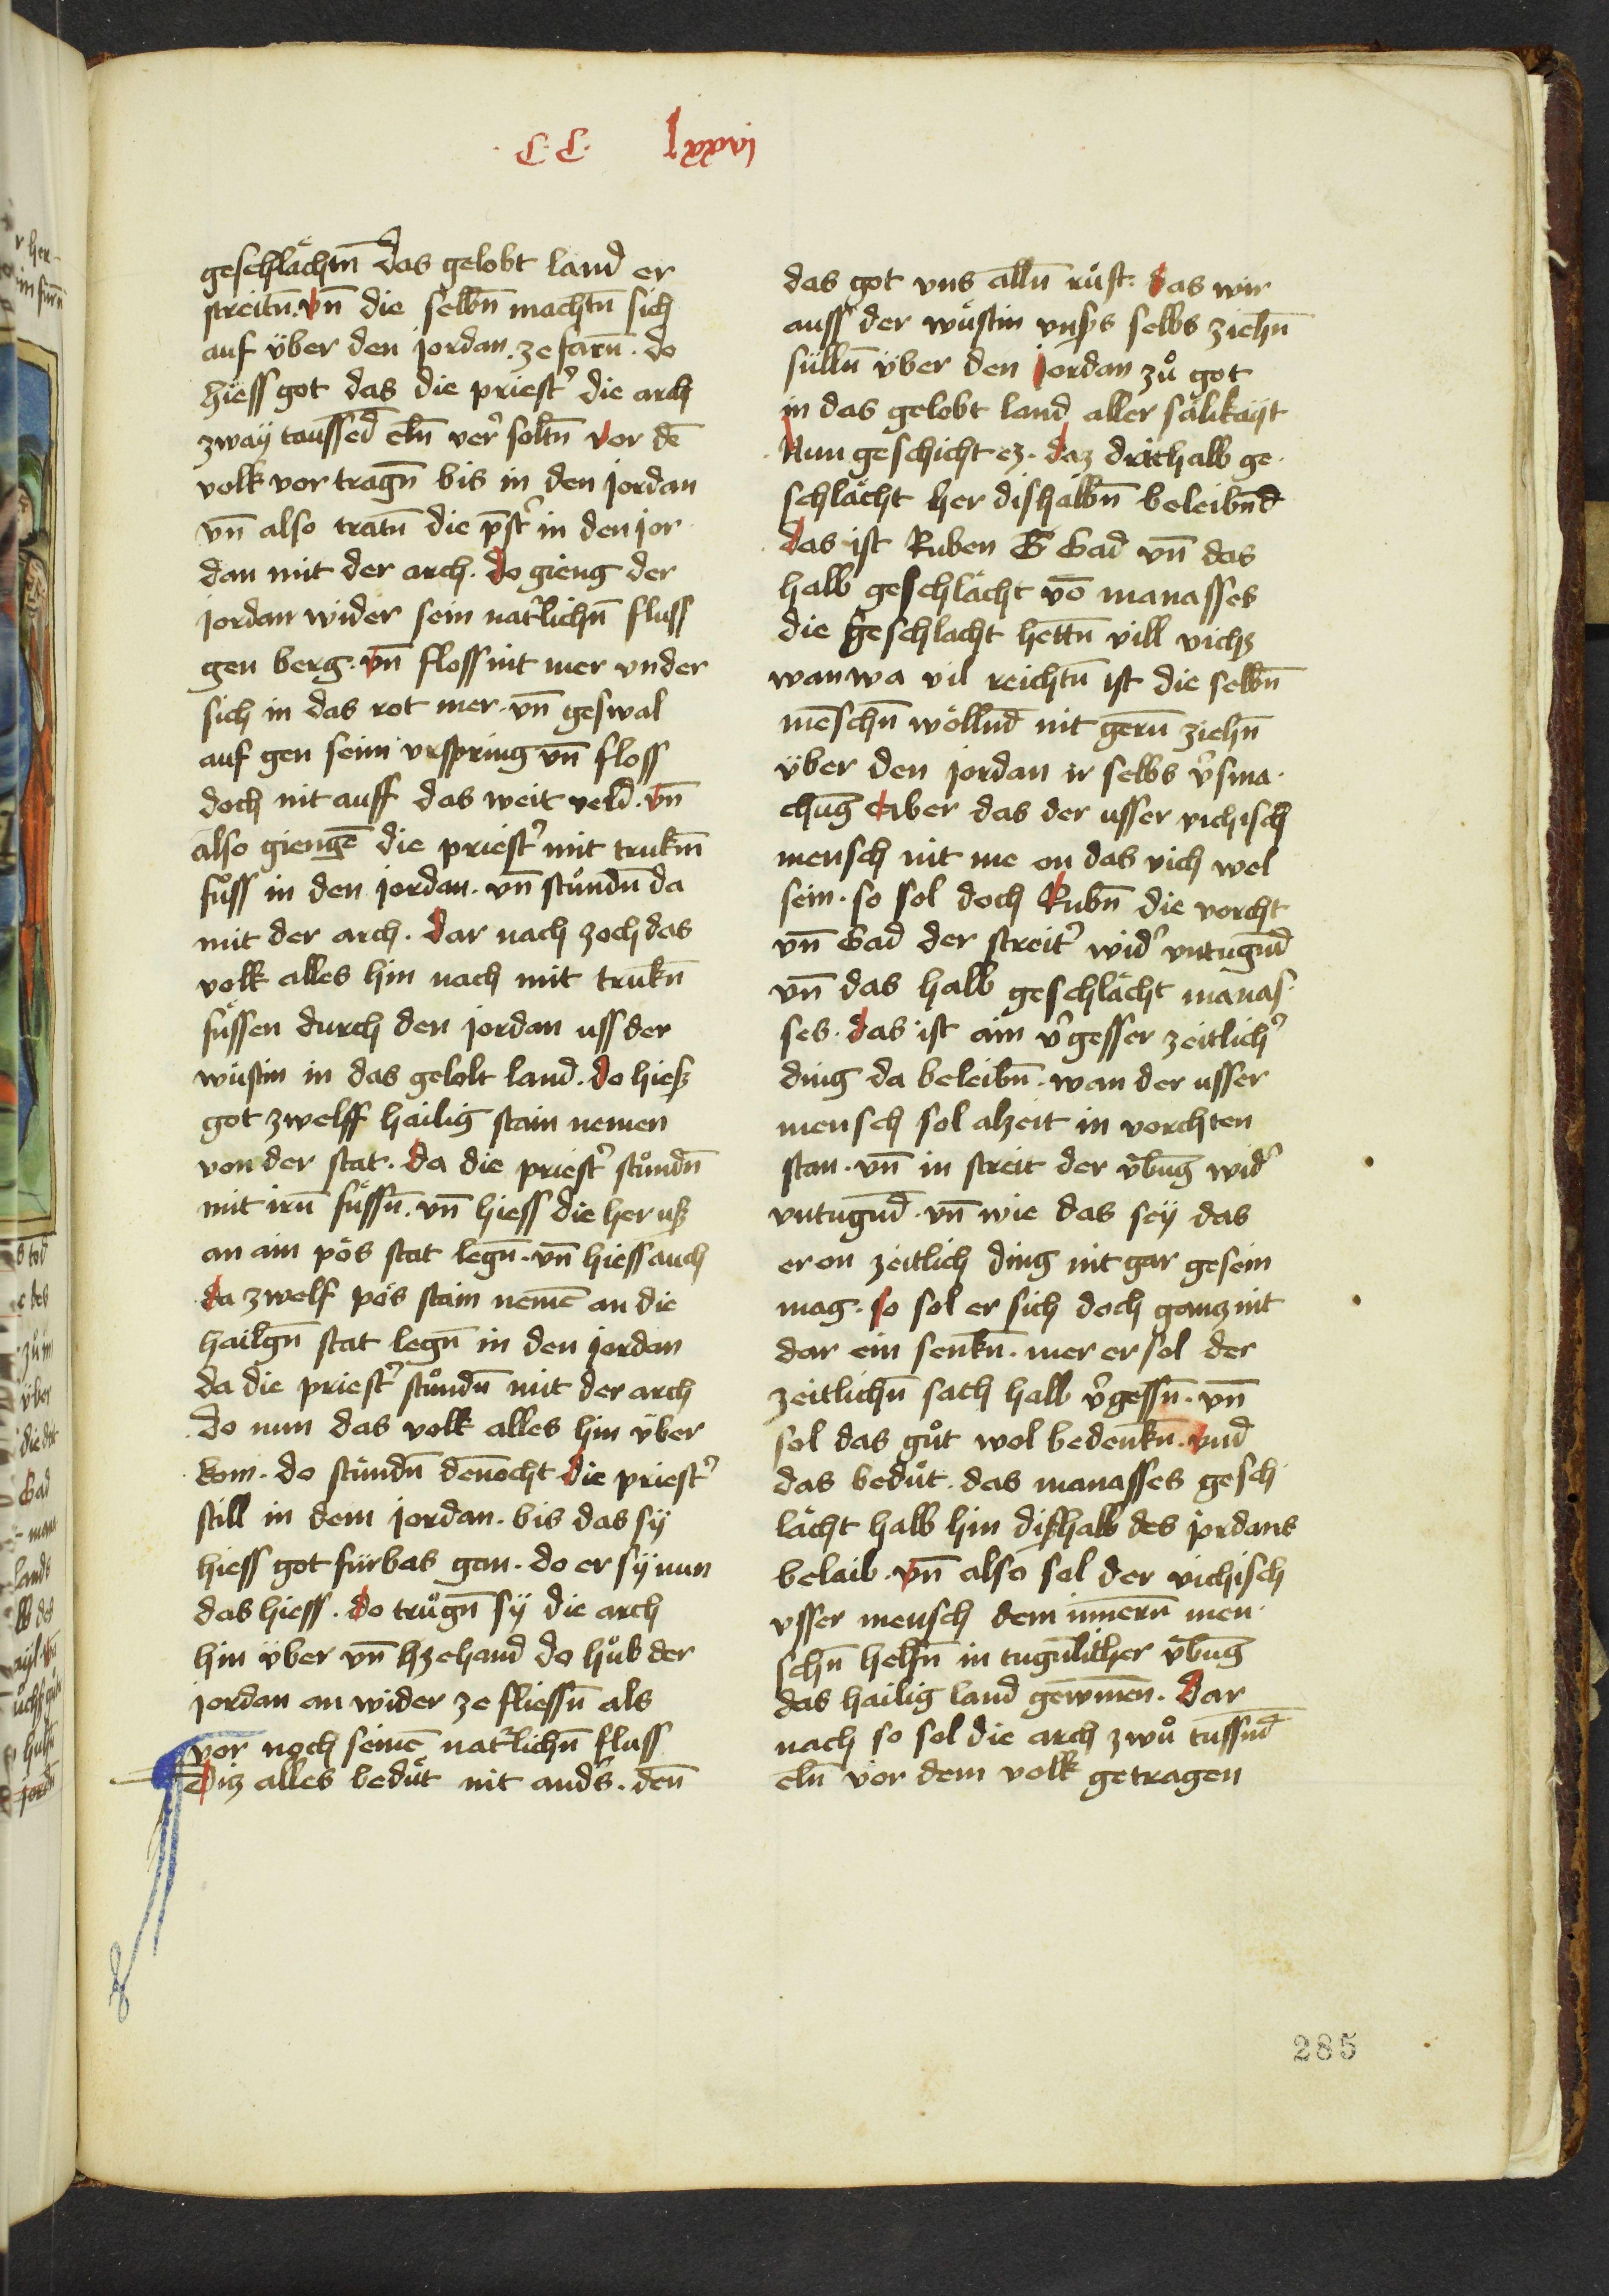 C·C· lxxxvi
geschlächtñ das gelobt land er
streitñ. vñ die selbñ machtñ sich
auf v̈ber den jordan. ze farñ. do
hiess got das die priestˀ die arch
zwaÿ taussēd elñ verˀ soltñ vor dē
volk vor tragñ bis in den jordan
vñ also tratñ die pͥstˀ in den jor
dan mit der arch. do gieng der
jordan wider sein natˀlichñ fluss
gen berg. vñ floss nit mer vnder
sich in das rot mer. vñ geswal
auf gen seim vrspring vñ floss
doch nit auff das weit veld. vñ
also giengē die priestˀ mit truknē
fuͦss in den jordan. vñ stuͦndñ da
mit der arch. dar nach zoch das
volk alles hin nach mit truknñ
füssen durch den jordan uss der
wüstin in das gelobt land. do hiesz
got zwelff hailig stain nemen
von der stat. da die priestˀ stuͦndñ
mit irñ füssñ. vñ hiess die her usz
an ain pös stat legñ. vñ hiess auch
da zwelf pös stain nemē an die
hailgñ stat legñ in den jordan
da die priestˀ stuͦndñ mit der arch
do nun das volk alles hin v̈ber
kom. do stuͦndñ dēnocht die priestˀ
still in dem jordan. bis das sÿ
hiess got fürbas gan. do er sÿ nun
das hiess. do truͦgñ sÿ die arch
hin v̈ber vñ zehand do huͦb der
jordan an wider ze fliessñ als
vor noch seinē natˀlichñ fluss
Diz alles bedüt nit andˀs. deñ
das got vns allñ ruͤft. das wir
auss der wüstin vnsˀs selbs ziehñ
süllñ v̈ber den jordan zuͦ got
in das gelobt land aller sälikäyt
Nun geschicht ez. daz drithalb ge
schlächt her dishalbñ beleibñd
das ist Ruben G Gad vñ das
halb geschlächt vō manasses
die geschlacht hettñ vill vichz
wan wa vil reichtū ist die selbñ
mēschñ wöllñd nit gerñ ziehñ
v̈ber den jordan ir selbs vˀsma
chūg Aber das der usser vichisch
mensch nit me on das vich wel
sein. so sol doch Rubñ die vorcht
vñ Gad der streitˀ widˀ vntugñd
vñ das halb geschlächt manas
ses. das ist ain vˀgesser zeitlichˀ
ding da beleibñ. wan der usser
mensch sol alzeit in vorchten
stan. vñ in streit der v̈būg widˀ
vntugñd. vñ wie das seÿ das
er on zeitlich ding nit gar gesein
mag. so sol er sich doch ganz nit
dar ein senkñ. mer er sol der
zeitlichñ sach halb vˀgessñ. vñ
sol das guͦt wol bedenkñ. vnd
das bedüt. das manasses gesch
lächt halb hin diszhalb des jordans
belaib. vñ also sol der vichisch
vsser mensch dem innerñ men
schñ helfñ in tugñlicher v̈būg
das hailig land gewinnēn. Dar
nach so sol die arch zwuͦ tussñd
elñ vor dem volk getragen
285